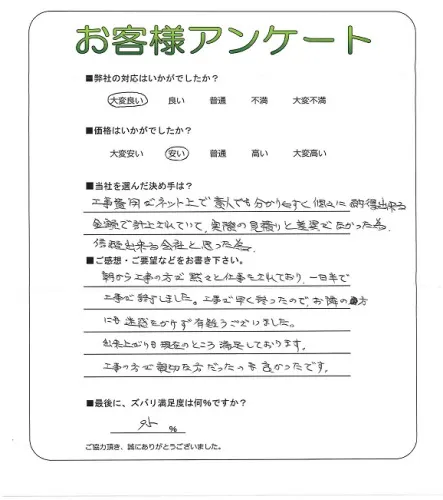 お客様アンケート
■弊社の対応はいかがでしたか？
大変良い 良い 普通 不満 大変不満
■価格はいかがでしたか？
大変安い 安い 普通 高い 大変高い
■当社を選んだ決め手は？
工事費用がネット上で素人でも分かりやすく個々に納得出来る
金額で計上されていて、実際の見積りと差異がなかった為
信頼出来る会社と思った為
■ご感想・ご要望などをお書き下さい。
朝から工事の方が黙々と仕事をされており、一日半で
工事が終了しました。工事が早く終ったので、お隣の方
にも迷惑をかけず有難うございました。
お仕上がりも現在のところ満足しております。
工事の方が親切な方だったのも良かったです。
■最後に、ズバリ満足度は何％ですか？
95 ％
ご協力頂き、誠にありがとうございました。